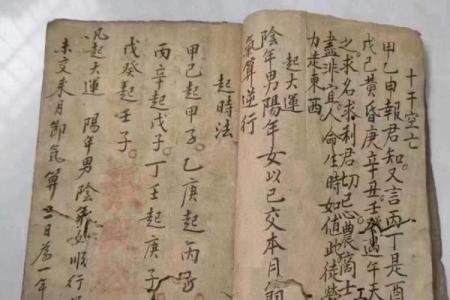 十干空亡
甲乙申報君知又言丙丁是酉
戊己黄昏庚辛丑壬癸遇午天
之求名求利君切忌農商士
盡非宜人命生時如值此徒勞
力走東西
起大運
陰年男陽年女以已交本月節
氣算逆行
起時法
甲己起甲子乙庚起丙子
丙辛起戊子丁壬起庚子
戊癸起壬子
凡起大運陽年男陰年女順行
未交來月節氣算三日為一年